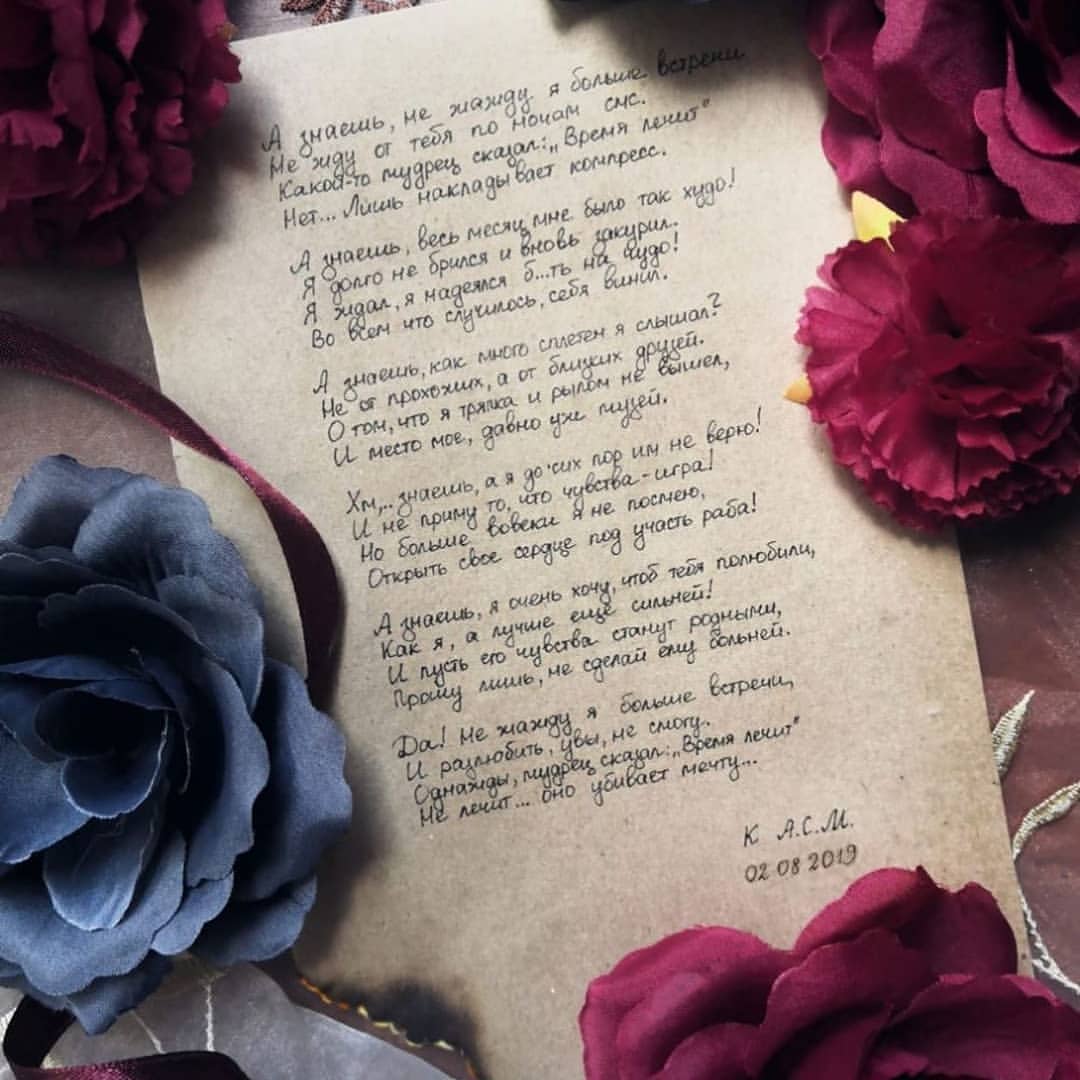 А знаешь, не жажду я больше встречи
Не жду от тебя по ночам смс.
Какой-то мудрец сказал: „Время лечит"
Нет... Лишь накладывает компресс.
А знаешь, весь месяц мне было так худо!
Я долго не брился и вновь закурил.
Я ждал, я надеялся б...ть на чудо!
Во всём что случилось, себя винил.
А знаешь, как много сплетен я слышал?
Не от прохожих, а от близких друзей.
О том, что я тряпка и рылом не вышел,
И место мое, давно уже музей.
Хм,.. знаешь, а я до сих пор им не верю!
И не приму то, что чувства - игра!
Но больше вовеки я не посмею,
Открыть свое сердце под участь раба!
А знаешь, я очень хочу, чтоб тебя полюбили,
Как я, а лучше ещё сильней!
И пусть его чувства станут родными,
Прошу лишь, не сделай ему больней.
Да! Не жажду я больше встречи,
И разлюбить, увы, не смогу.
Однажды, мудрец сказал: „Время лечит"
Не лечит... оно убивает мечту...
К А.С.М.
02 08 2019